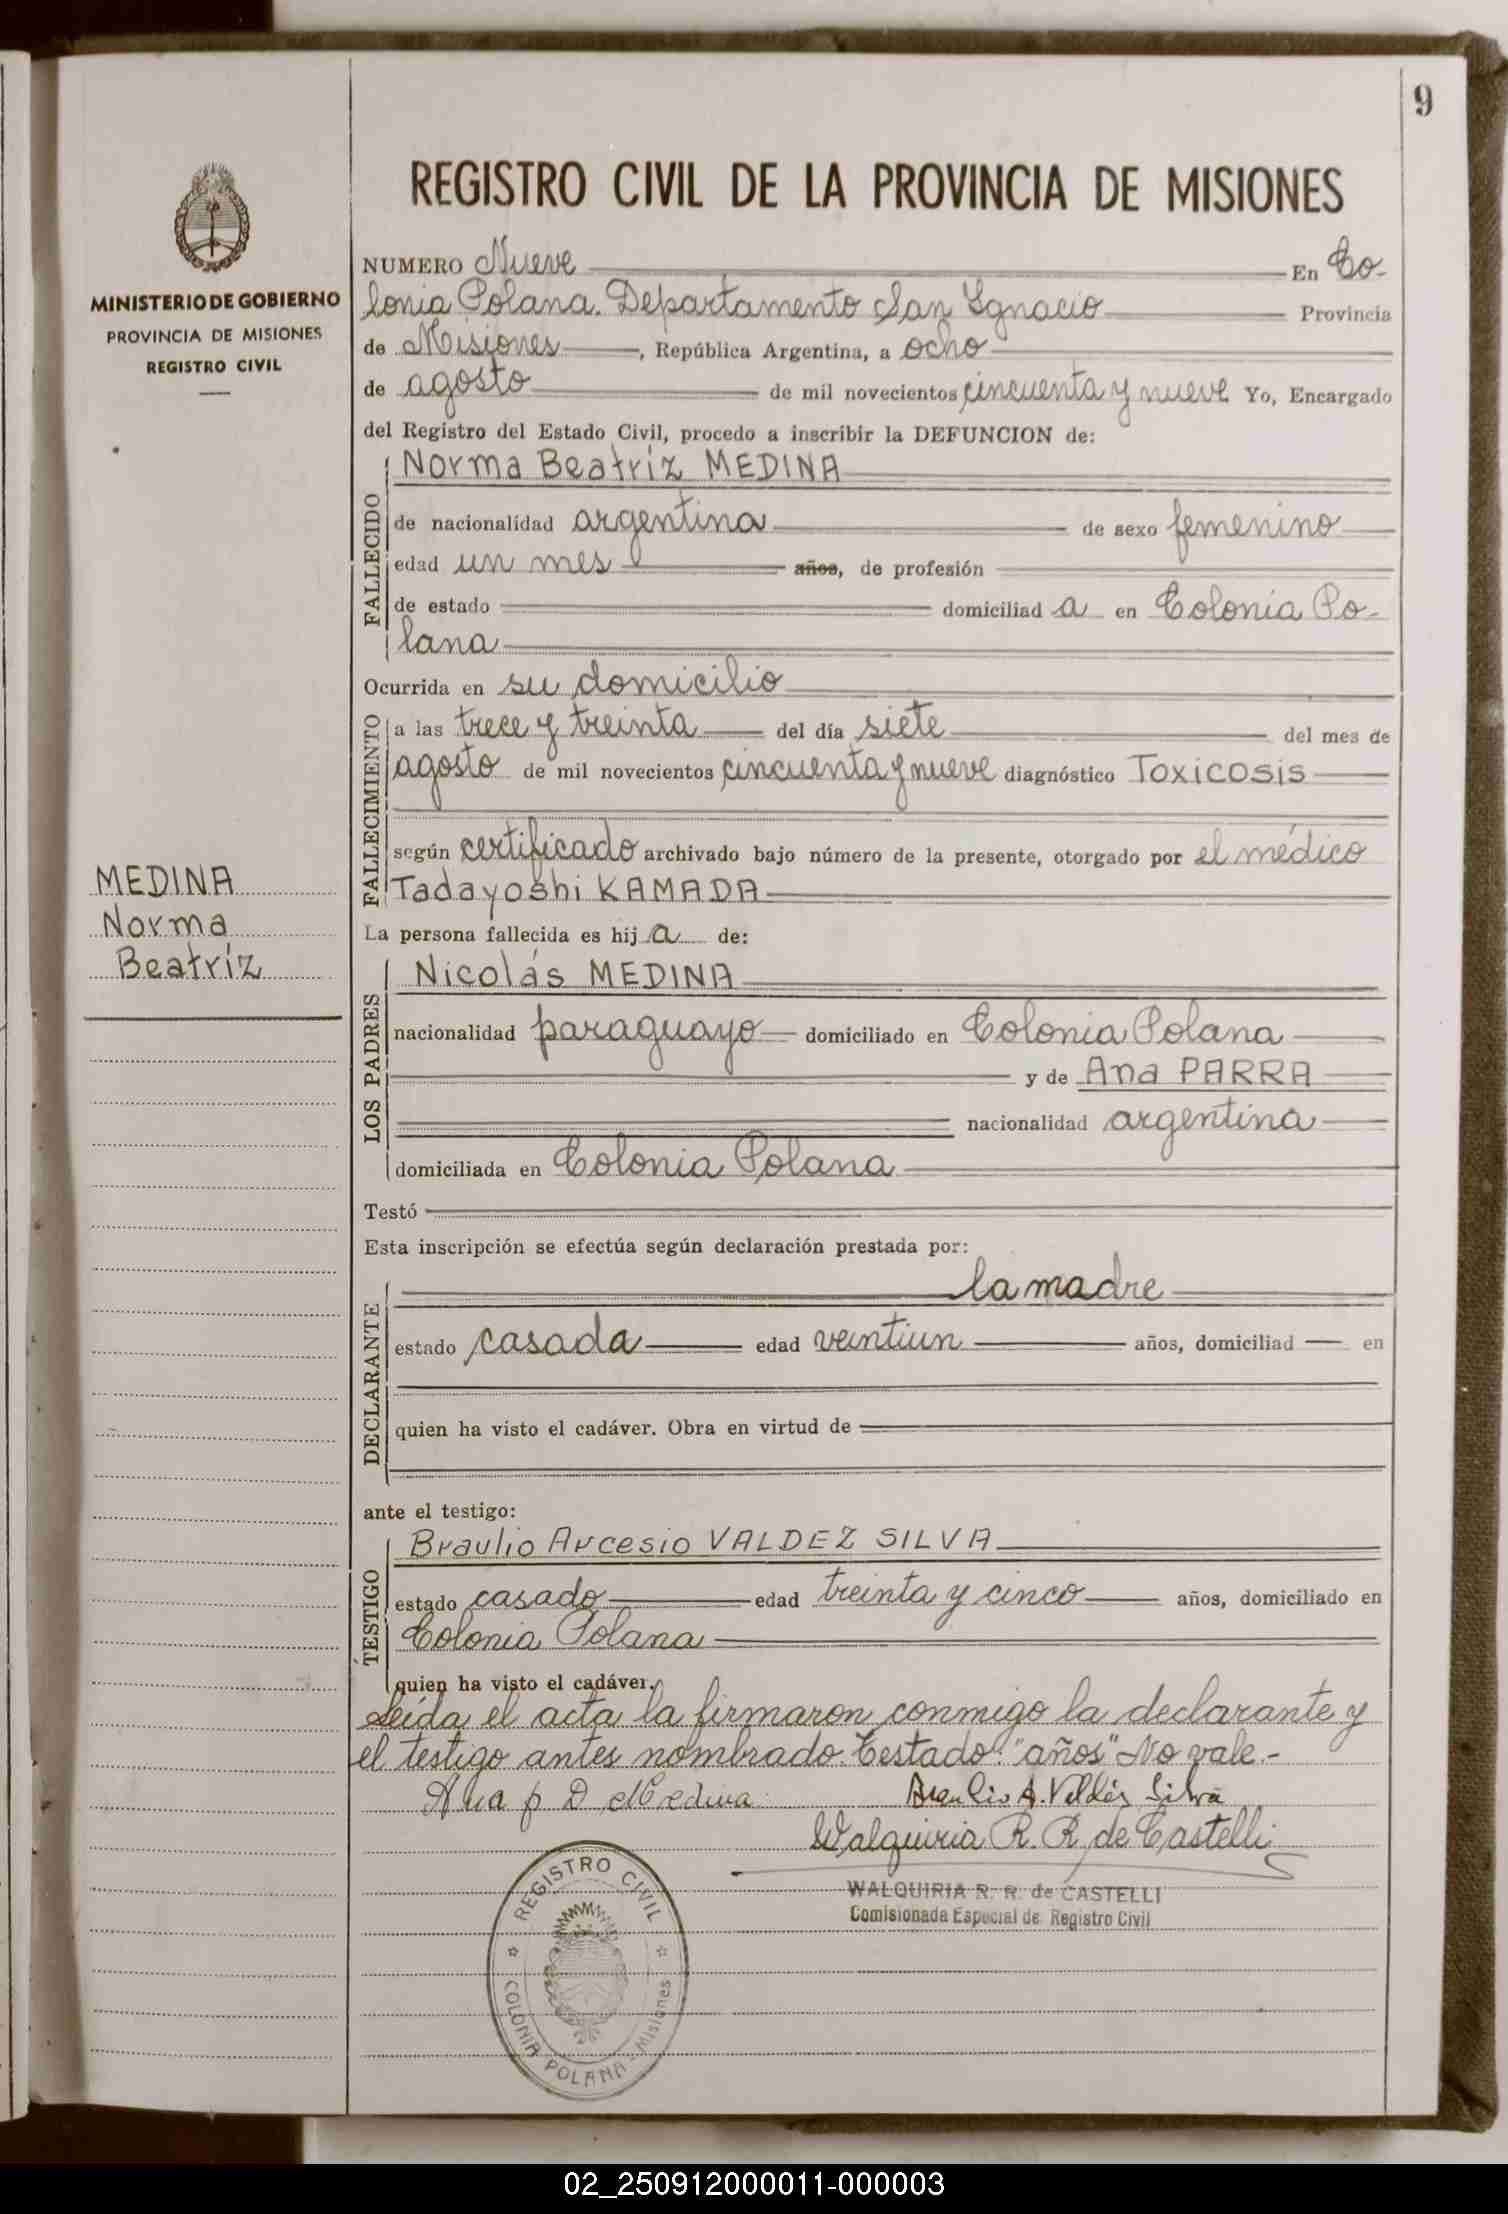 9
REGISTRO CIVIL DE LA PROVINCIA DE MISIONES
MINISTERIO DE GOBIERNO
PROVINCIA DE MISIONES
REGISTRO CIVIL
NUMERO Nueve En Co-
lonia Polana. Departamento San Ignacio Provincia
de Misiones, República Argentina, a ocho
de agosto de mil novecientos cincuenta y nueve Yo, Encargado
del Registro del Estado Civil, procedo a inscribir la DEFUNCION de:
FALLECIDO
Norma Beatríz MEDINA
de nacionalidad argentina de sexo femenino
edad un mes años, de profesión
de estado domiciliad a en Colonia Po-
lana
Ocurrida en su domicilio
FALLECIMIENTO
a las trece y treinta del día siete del mes de
agosto de mil novecientos cincuenta y nueve diagnóstico Toxicosis
según certificado archivado bajo número de la presente, otorgado por el médico
Tadayoshi KAMADA
MEDINA
Norma
Beatríz
La persona fallecida es hij a de:
LOS PADRES
Nicolás MEDINA
nacionalidad paraguayo domiciliado en Colonia Polana
y de Ana PARRA
nacionalidad argentina
domiciliada en Colonia Polana
Testó
Esta inscripción se efectúa según declaración prestada por:
DECLARANTE
la madre
estado casada edad veintiun años, domiciliad en
quien ha visto el cadáver. Obra en virtud de
ante el testigo:
TESTIGO
Braulio Arcesio VALDEZ SILVA
estado casado edad treinta y cinco años, domiciliado en
Colonia Polana
quien ha visto el cadáver.
Leída el acta la firmaron conmigo la declarante y
el testigo antes nombrado. Testado: "años" No vale.-
Ana p D Medina Braulio A. Valdéz Silva
Walquiria R. R. de Castelli
WALQUIRIA R. R. de CASTELLI
Comisionada Especial de Registro Civil
REGISTRO CIVIL
COLONIA POLANA - Misiones
02_250912000011-000003